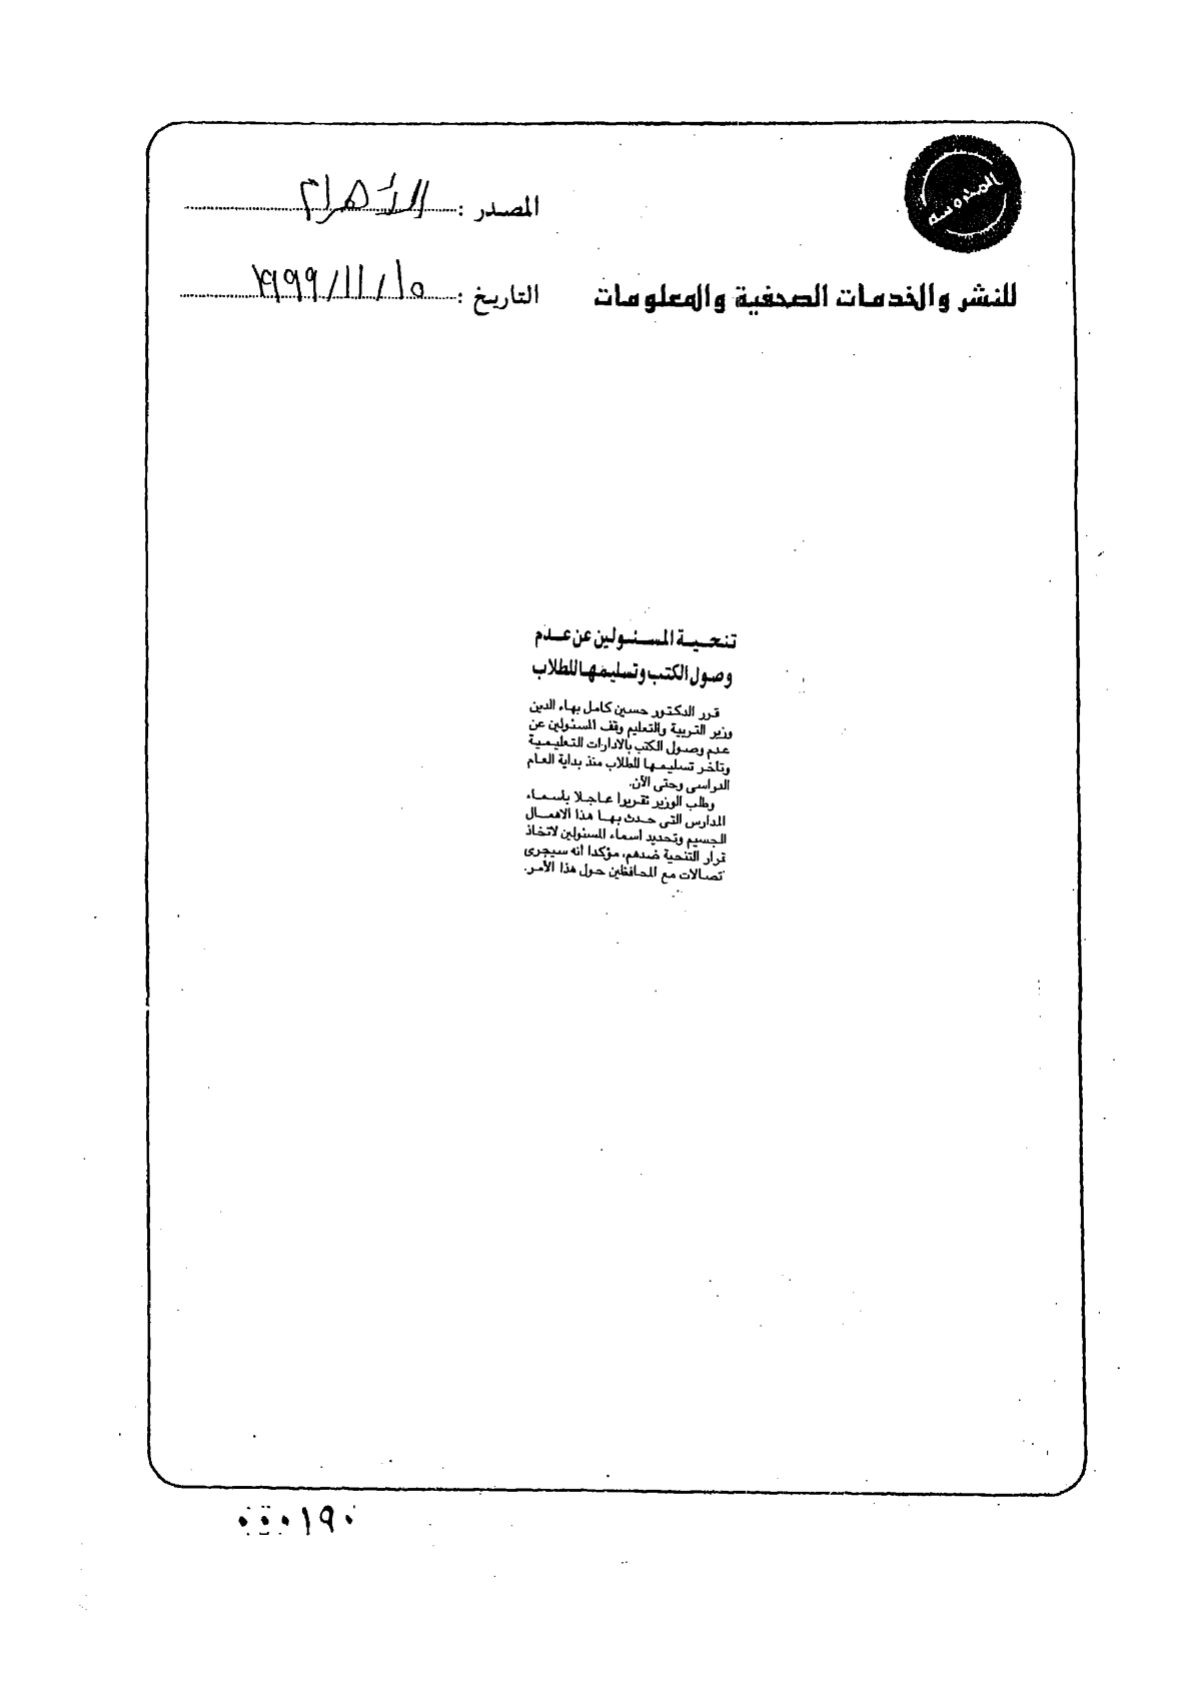 المحروسة
المصدر : الأهرام
للنشر والخدمات الصحفية والمعلومات
التاريخ : ١٥/ ١١/ ١٩٩٩
تنحيـة المسـئـولين عن عـدم
وصول الكتب وتسليمها للطلاب
قرر الدكتور حسين كامل بهاء الدين
وزير التربية والتعليم وقف المسئولين عن
عدم وصول الكتب بالادارات التعليمية
وتأخر تسليمها للطلاب منذ بداية العام
الدراسى وحتى الآن.
وطلب الوزير تقريرا عاجلا بأسماء
المدارس التى حدث بها هذا الاهمال
الجسيم وتحديد اسماء المسئولين لاتخاذ
قرار التنحية ضدهم، مؤكدا أنه سيجرى
تصالات مع المحافظين حول هذا الأمر.
٠٠٠١٩٠